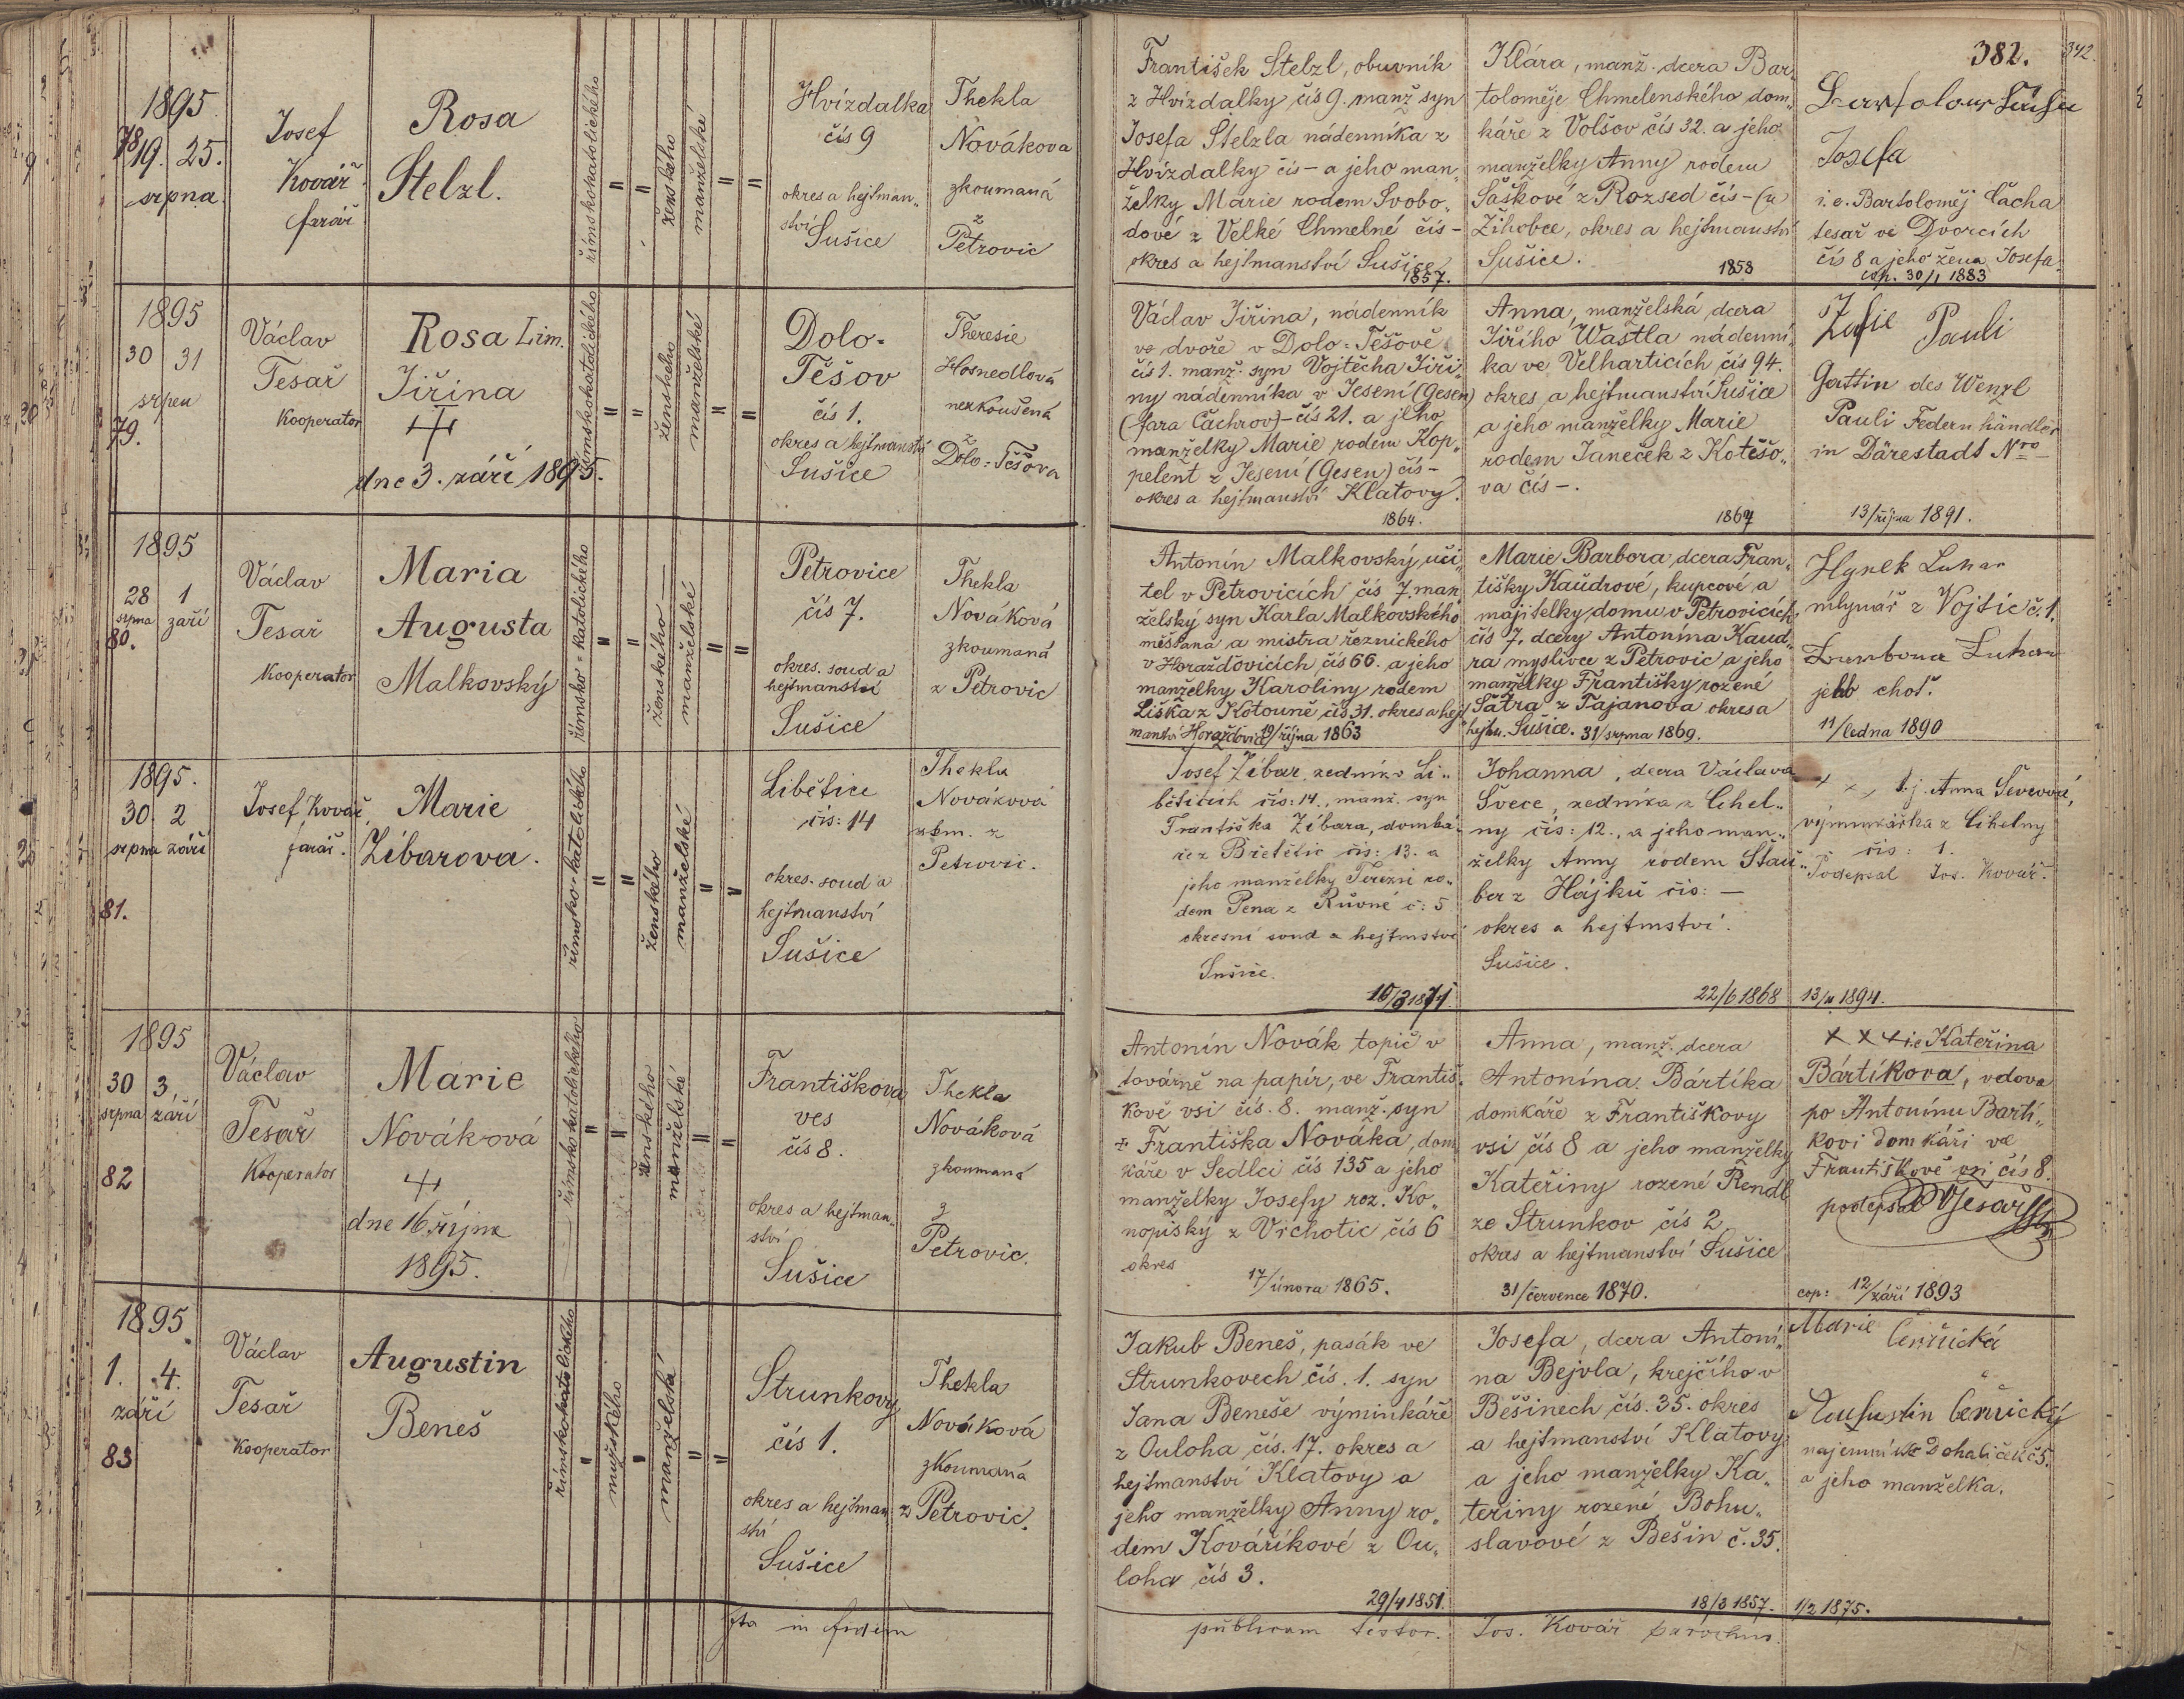 382.
342.
1895
78
19. 25.
srpna
Josef
Kovář
farář
Rosa
Stelzl.
římskokatolického
ženského
manželské
Hvízdalka
čís 9
okres a hejtman„
ství
Sušice
Thekla
Novákova
zkoumaná
z
Petrovic
František Stelzl, obuvník
z Hvízdalky čís 9. manž syn
Josefa Stelzla nádenníka z
Hvízdalky čís – a jeho man„
želky Marie rodem Svobo„
dové z Velké Chmelné čís –
okres a hejtmanství Sušice
1857.
Klára, manž. dcera Bar„
toloměje Chmelenského dom„
káře z Volšov čís 32. a jeho
manželky Anny rodem
Saškové z Rozsed čís – (u
Žihobce, okres a hejtmanství
Sušice.
1858
Josefa
i. e. Bartoloměj Čácha
tesař ve Dvorcích
čís 8 a jeho žena Josefa.
cop. 30/1 1883
1895
30 31
srpen
79.
Václav
Tesař
Kooperator
Rosa Lim.
Jiřina
dne 3. září 1895.
římskokatolického
ženského
manželské
Dolo=
Těšov
čís 1.
okres a hejtmanství
Sušice
Theresie
Hosnedlová
nezkoušená
z
Dolo=Těšova
Václav Jiřina, nádenník
ve dvoře v Dolo=Těšově
čís 1. manž. syn Vojtěcha Jiři„
ny nádenníka v Jesení (Gesen)
(fara Čachrov) – čís 21. a jeho
manželky Marie rodem Kop„
pelent z Jesení (Gesen) čís –
okres a hejtmanství Klatovy.
1864.
Anna, manželská dcera
Jiřího Wastla nádenní„
ka ve Velharticích čís 94.
okres a hejtmanství Sušice
a jeho manželky Marie
rodem Janeček z Kotěšo„
va čís –.
1867
Pauli
Gattin des Wenzl
Pauli Federnhändler
in Därestadt Nro –
13/října 1891.
1895
28 1
srpna září
80.
Václav
Tesař
Kooperator
Maria
Augusta
Malkovský
římsko=katolického
ženského
manželské
Petrovice
čís 7.
okres. soud a
hejtmanství
Sušice
Thekla
Nováková
zkoumaná
z Petrovic
Antonín Malkovský, uči„
tel v Petrovicích čís 7. man„
želský syn Karla Malkovského
měšťana a mistra řeznického
v Horažďovicích čís 66. a jeho
manželky Karoliny rodem
Liška z Kotouně čís 31. okres a hejt„
manství Horažďovic 19/října 1863
Marie Barbora, dcera Fran„
tišky Kaudrové, kupcové a
majitelky domu v Petrovicích
čís 7. dcery Antonína Kaud„
ra myslivce z Petrovic a jeho
manželky Františky rozené
Šatra z Tajanova okres a
hejtm. Sušice. 31/srpna 1869.
Hynek Luhan
mlynář z Vojtic č. 1.
Luhan
jeho choť.
11/ledna 1890
1895.
30. 2
srpna září
81.
Josef Kovář,
farář.
Marie
Žíbarova.
římsko-katolického
ženského
manželské
Libětice
čís: 14
okres. soud a
hejtmanství
Sušice
Thekla
Nováková
zkm. z
Petrovic.
Josef Žíbar, zedník v Li„
běticích čís: 14., manž. syn
Františka Žíbara, domká„
ře z Břetětic čís: 13. a
jeho manželky Terezie ro„
dem Pena z Růvné č: 5
okresní soud a hejtmství
Sušice.
10/3 1871.
Johanna, dcera Václava
Švece, zedníka z Cihel„
ny čís: 12., a jeho man„
želky Anny rodem Stau„
ber z Hájků čís: –
okres a hejtmství.
Sušice.
22/6 1868
+ + + t. j. Anna Ševcová,
výminkářka z Cihelny
čís: 1.
Podepsal Jos. Kovář.
13/11 1894.
1895
30 3
srpna září
82
Václav
Tesař
Kooperator
Marie
Nováková
dne 16. října
1895.
římskokatolického
ženského
manželské
Františkova
ves
čís 8.
okres a hejtman„
ství
Sušice
Thekla
Nováková
zkoumaná
z
Petrovic.
Antonín Novák topič v
továrně na papír, ve Františ„
kově vsi čís. 8. manž. syn
+ Františka Nováka, dom„
káře v Sedlci čís 135 a jeho
manželky Josefy roz. Ko„
nopisky z Vrchotic čís 6
okres
17/února 1865.
Anna, manž. dcera
Antonína Bártíka
domkáře z Františkovy
vsi čís 8 a jeho manželky
Kateřiny rozené Rendl
ze Strunkov čís 2
okres a hejtmanství Sušice
31/července 1870.
+ + + i.e Kateřina
Bártíkova, vdova
po Antonínu Bartí„
kovi domkáři ve
Františkově vsi čís 8.
podepsal VTesař
cop: 12/září 1893
1895.
1. 4.
září
83
Václav
Tesař
Kooperator
Augustin
Beneš
římskokatolického
mužského
manželské
Strunkovy
čís 1.
okres a hejtman„
ství
Sušice
Thekla
Nováková
zkoumaná
z Petrovic.
Jakub Beneš, pasák ve
Strunkovech čís. 1. syn
Jana Beneše výminkáře
z Ouloha čís. 17. okres a
hejtmanství Klatovy a
jeho manželky Anny ro„
dem Kovaříkové z Ou„
loha čís 3.
29/4 1851.
Josefa, dcera Antoní„
na Bejvla, krejčího v
Běšinech čís. 35. okres
a hejtmanství Klatovy
a jeho manželky Ka„
teřiny rozené Bohu„
slavové z Bešin č. 35.
18/3 1857.
Marie
Černická
Augustin Černický
nájemník z Dohaliček č 5.
a jeho manželka.
1/2 1875.
Ita in fidem
publicam testor. Jos. Kovář parochus.